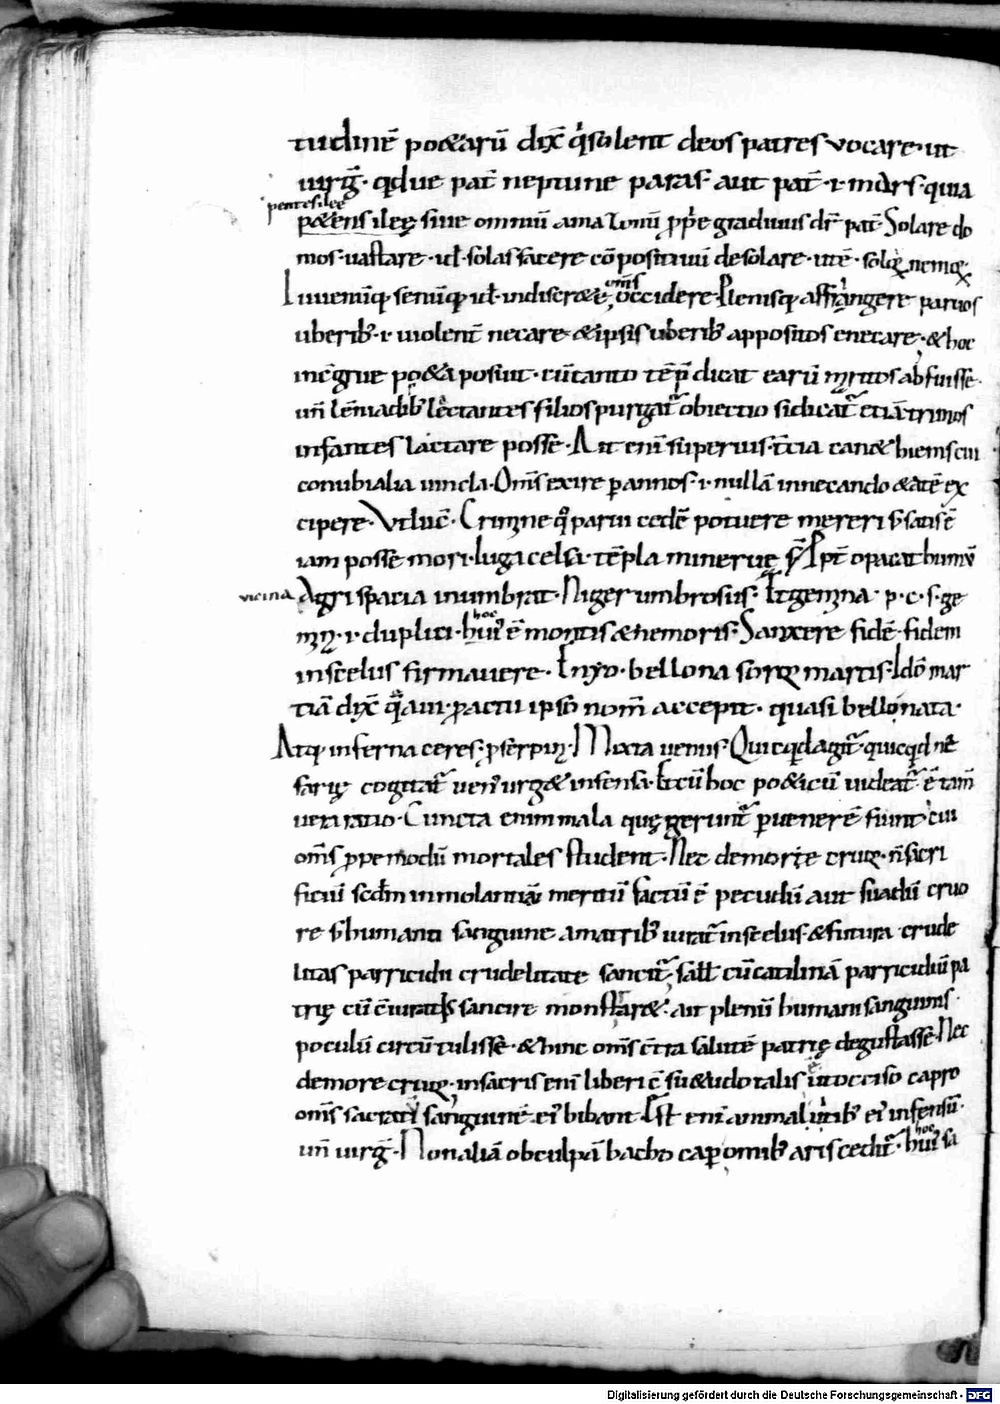 tudinē po&arū dix̄ q̇ solent deos patres vocare · ut
uirḡ · qdue pat̄ neptune paras · aut pat̄ · i · mars · quia
pentesileę
p&ensileę siue omniū amazonū ꝓp̄e gradiuus dr̄ pat̄ Solare do
mos · uastare · ul̄ · solas facere cōpositiuū desolare · ut ē · solq
Iuuenūq senūq ul̄ · indiscr&ę om̄s occidere · Plenisq affrangere paruos
uberib; · i · uiolent̄ necare & ipsis uberib; appositos enecare · & hoc
po&a posuit · cū tanto tēp̄ dicat earū maritos abfuisse ·
un̄ lēniadib; lactantes filios purgat̄ obiectio si dicat̄ etiā trimos
infantes lactare posse · Ait eni superius · t̄cia can& hiems cui
conubialia uincla · Om̄s exire ꝑ annos · i · nullā innecando &atē ex
cipere · Vt luc̄ · Crimine q̊ parui cedē potuere mereri s; satis ē
iam posse mori · luga celsa · tēpla mineruę opacat humū
uicina Agri spacia inumbrat · Niger umbrosus · It gemina · p · c · s · ge
hoc
i · duplici · hui; ē montis & nemoris · Sanxere fidē · fidem
inscelus firmauere · Enyo · bellona sorq martis · Idō mar
tiā dix̄ ꝓactu ipso nom̄ accepit · quasi bellonata ·
Atq inferna ceres · ꝓserpin · Mixta uenus · Quicqd agit̄ · quicqd ne
sarię cogitat̄ uen; urg& infensa · Et cū hoc po&icū uideat̄ · ē tam̄
uera ratio · Cuncta enim mala quę gerunt̄ ꝑ uenerē fiunt cui
om̄s ꝓpemodū mortales student · Nec de more cruq · n̄ sacri
ficiū scdm inmolantiū meritū factū ē pecudū aut suadū cruo
re s; humani sanguine a matrib; iurat̄ inscelus · & futura crude
litas parricidii crudelitate sancit̄ · Sall̄ cū catilinā parricidiū pa
trię cū c̄iuratis sancire monstrar& · ait plenū humani sanguinis ·
poculū circūtulisse · & hinc om̄s c̄tra salutē patrię degustasse · Nec
demore cruq · in sacris eni liberi c̄su&udo talis ut occiso capro
om̄s sacrati sanguinē ei; bibant · Est eni animal uitib; ei; infensū ·
hoc
un̄ uirḡ · Non aliā ob culpā bacho caꝑ omib; aris cedit̄ · hui; sa
Digitalisierung gefördert durch die Deutsche Forschungsgemeinschaft - DFG